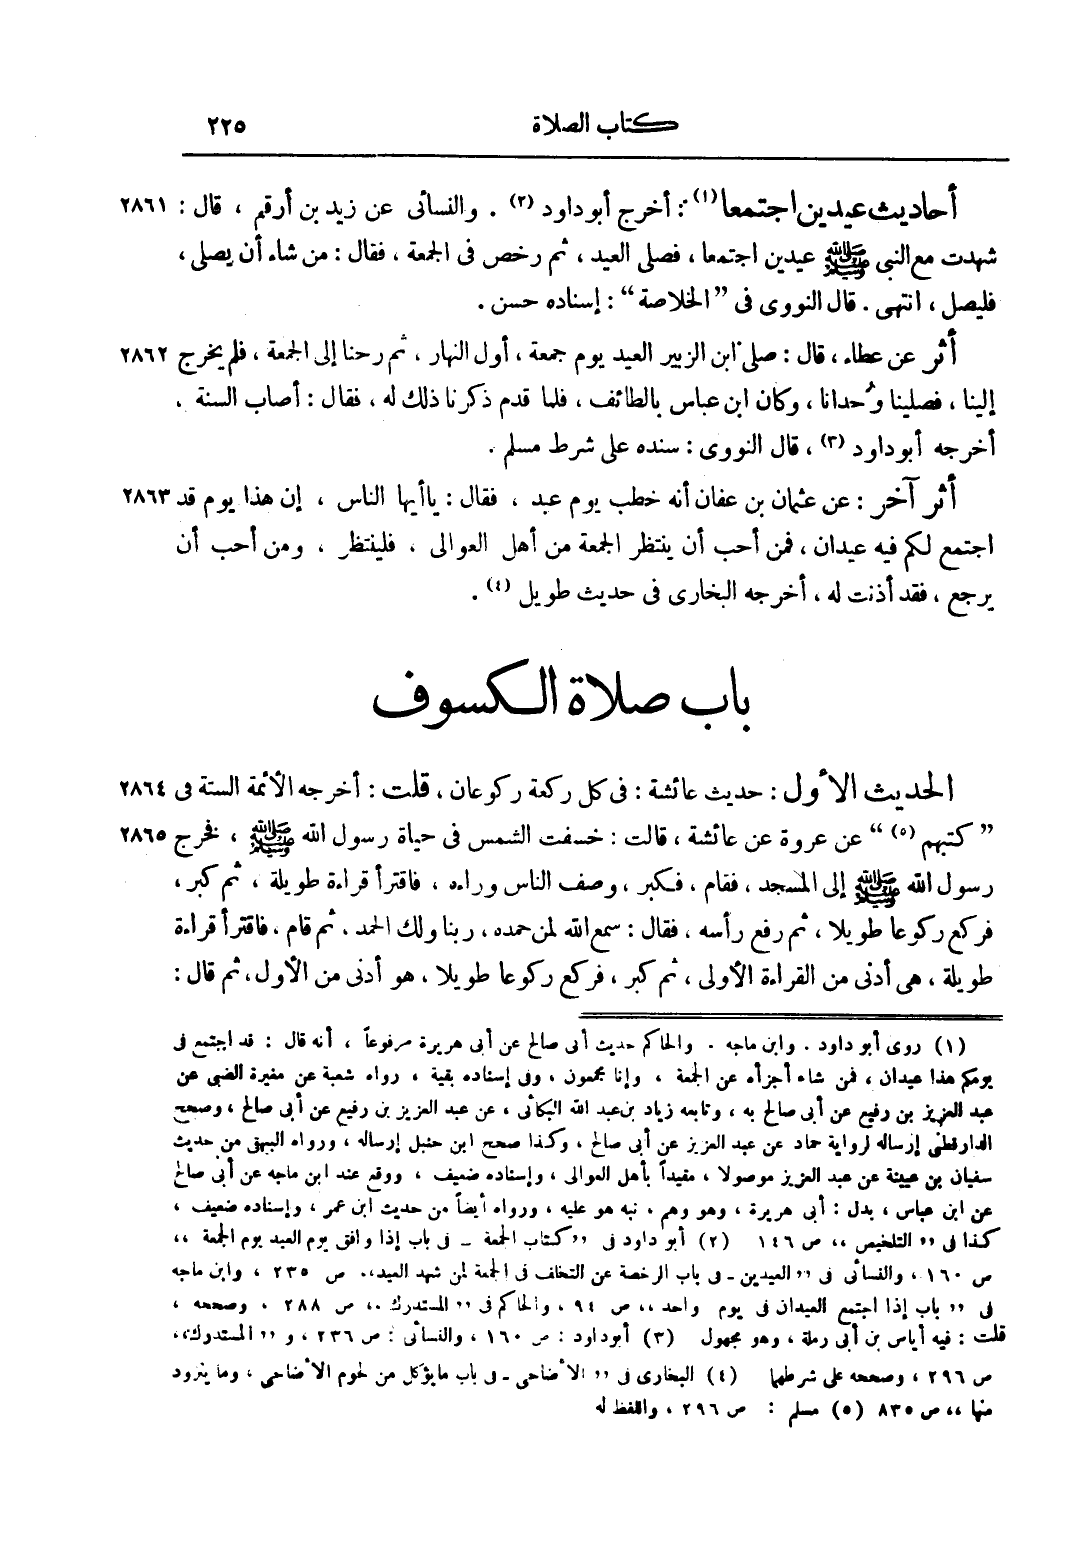 كتاب الصلاة ٢٢٥
أحاديث عيدين اجتمعا (١) : أخرج أبو داود (٢) . والنسائى عن زيد بن أرقم ، قال : ٢٨٦١
شهدت مع النبى ﷺ عيدين اجتمعا ، فصلى العيد ، ثم رخص فى الجمعة ، فقال : من شاء أن يصلى ،
فليصل ، انتهى . قال النووى فى "الخلاصة" : إسناده حسن .
أثر عن عطاء ، قال : صلى ابن الزبير العيد يوم جمعة ، أول النهار ، ثم رحنا إلى الجمعة ، فلم يخرج ٢٨٦٢
إلينا ، فصلينا وُحدانا ، وكان ابن عباس بالطائف ، فلما قدم ذكرنا ذلك له ، فقال : أصاب السنة .
أخرجه أبو داود (٣) ، قال النووى : سنده على شرط مسلم .
أثر آخر : عن عثمان بن عفان أنه خطب يوم عيد ، فقال : يا أيها الناس ، إن هذا يوم قد ٢٨٦٣
اجتمع لكم فيه عيدان ، فمن أحب أن ينتظر الجمعة من أهل العوالى ، فلينتظر ، ومن أحب أن
يرجع ، فقد أذنت له ، أخرجه البخارى فى حديث طويل (٤) .
باب صلاة الكسوف
الحديث الأول : حديث عائشة : فى كل ركعة ركوعان ، قلت : أخرجه الأئمة الستة فى ٢٨٦٤
"كتبهم (٥)" عن عروة عن عائشة ، قالت : خسفت الشمس فى حياة رسول الله ﷺ ، فخرج ٢٨٦٥
رسول الله ﷺ إلى المسجد ، فقام ، فكبر ، وصف الناس وراءه ، فاقترأ قراءة طويلة ، ثم كبر ،
فركع ركوعا طويلا ، ثم رفع رأسه ، فقال : سمع الله لمن حمده ، ربنا ولك الحمد . ثم قام ، فاقترأ قراءة
طويلة ، هى أدنى من القراءة الأولى ، ثم كبر ، فركع ركوعا طويلا ، هو أدنى من الأول ، ثم قال :
(١) روى أبو داود . وابن ماجه . والحاكم حديث أبى صالح عن أبى هريرة مرفوعاً ، أنه قال : قد اجتمع فى
يومكم هذا عيدان ، فمن شاء أجزأه عن الجمعة ، وإنا مجمعون ، وفى إسناده بقية ، رواه شعبة عن مغيرة الضبى عن
عبد العزيز بن رفيع عن أبى صالح به ، وتابعه زياد بن عبد الله البكائى ، عن عبد العزيز بن رفيع عن أبى صالح ، وصحح
الدارقطنى إرساله لرواية حماد عن عبد العزيز عن أبى صالح ، وكذا صحح ابن حنبل إرساله ، ورواه البيهقى من حديث
سفيان بن عيينة عن عبد العزيز موصولا ، مقيداً بأهل العوالى ، وإسناده ضعيف ، ووقع عند ابن ماجه عن أبى صالح
عن ابن عباس ، بدل : أبى هريرة ، وهو وهم . نبه هو عليه ، ورواه أيضاً من حديث ابن عمر ، وإسناده ضعيف ،
كذا فى ,, التلخيص ،، ص ١٤٦ (٢) أبو داود فى ,, كتاب الجمعة _ فى باب إذا وافق يوم العيد يوم الجمعة ،،
ص ١٦٠ ، والنسائى فى ,, العيدين _ فى باب الرخصة عن التخلف فى الجمعة لمن شهد العيد ،، ص ٢٣٥ ، وابن ماجه
فى ,, باب إذا اجتمع العيدان فى يوم واحد ،، ص ٩٤ ، والحاكم فى ,, المستدرك ،، ص ٢٨٨ ، وصححه ،
قلت : فيه أياس بن أبى رملة ، وهو مجهول (٣) أبو داود : ص ١٦٠ ، والنسائى : ص ٢٣٦ ، و ,, المستدرك ،،
ص ٢٩٦ ، وصححه على شرطهما (٤) البخارى فى ,, الأضاحى _ فى باب ما يؤكل من لحوم الأضاحى ، وما يتزود
منها ،، ص ٨٣٥ (٥) مسلم : ص ٢٩٦ ، واللفظ له